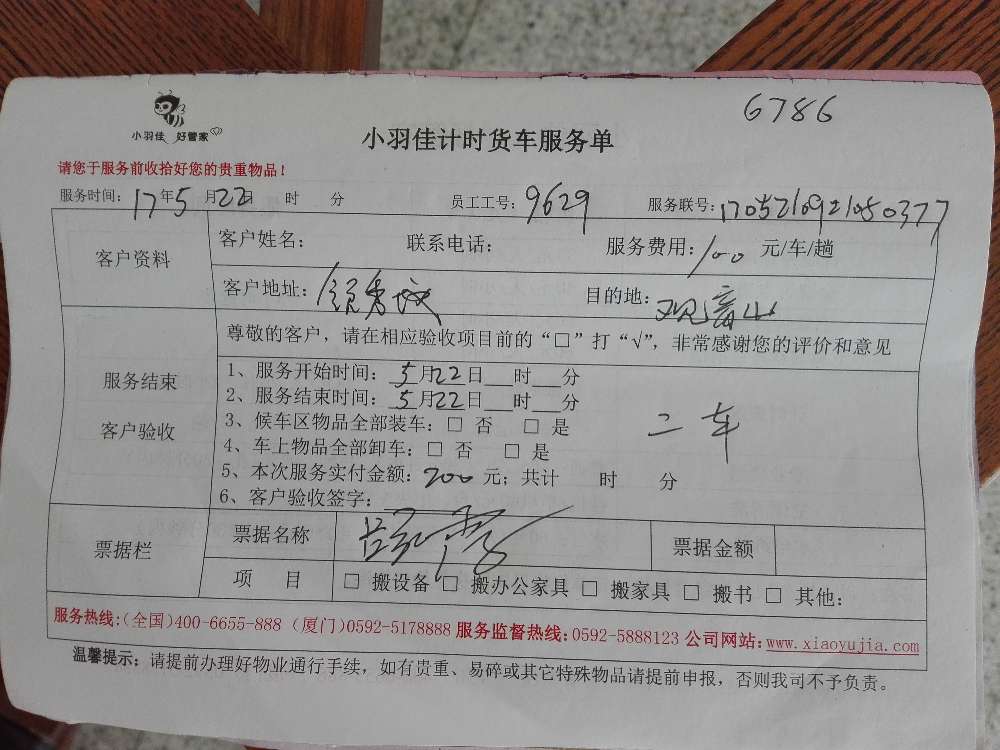 6786
小羽佳 好管家
小羽佳计时货车服务单
请您于服务前收拾好您的贵重物品!
服务时间: 17年5月22日 时 分 员工工号: 9629 服务联号: 1705210921050377
客户资料
客户姓名: 联系电话: 服务费用: 100 元/车/趟
客户地址: 目的地: 观音山
尊敬的客户，请在相应验收项目前的“□”打“√”，非常感谢您的评价和意见
服务结束
客户验收
1、服务开始时间: 5月22日___时___分
2、服务结束时间: 5月22日___时___分
3、候车区物品全部装车: □ 否 □ 是
二车
4、车上物品全部卸车: □ 否 □ 是
5、本次服务实付金额: 200 元; 共计 时 分
6、客户验收签字:
票据栏
票据名称 票据金额
项 目 □ 搬设备 □ 搬办公家具 □ 搬家具 □ 搬书 □ 其他:
服务热线:(全国)400-6655-888 (厦门)0592-5178888 服务监督热线:0592-5888123 公司网站:www.xiaoyujia.com
温馨提示: 请提前办理好物业通行手续，如有贵重、易碎或其它特殊物品请提前申报，否则我司不予负责。